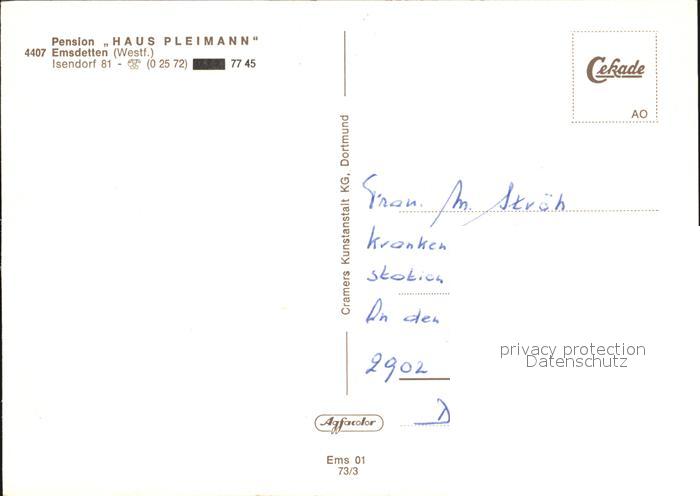 Pension „HAUS PLEIMANN"
4407 Emsdetten (Westf.)
Isendorf 81 - ☏ (0 25 72) 77 45
Cekade
AO
Cramers Kunstanstalt KG, Dortmund
Frau. M. Ströh
Kranken
station
An den
2902
D
privacy protection
Datenschutz
Agfacolor
Ems 01
73/3